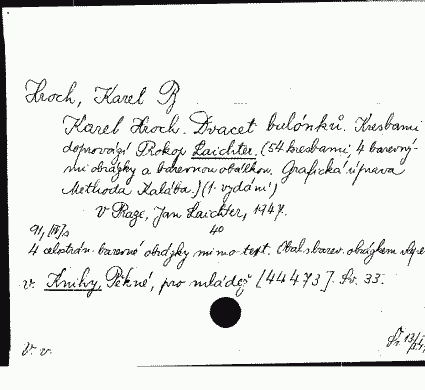 Hroch, Karel
Karel Hroch. Dvacet bulónků. Kresbami
doprovází Prokop Laichter. (54 kresbami, 4 barevný-
mi obrázky a barevnou obálkou. Grafická úprava
Methoda Kalába.) (1. vydání)
V Praze, Jan Laichter, 1947.
91, [II] s 40
4 celostrán. barevné obrázky mimo text. Obal s barev. obrázkem
v. Knihy, Pěkné, pro mládež [44473]. Sv. 33.
V. v.